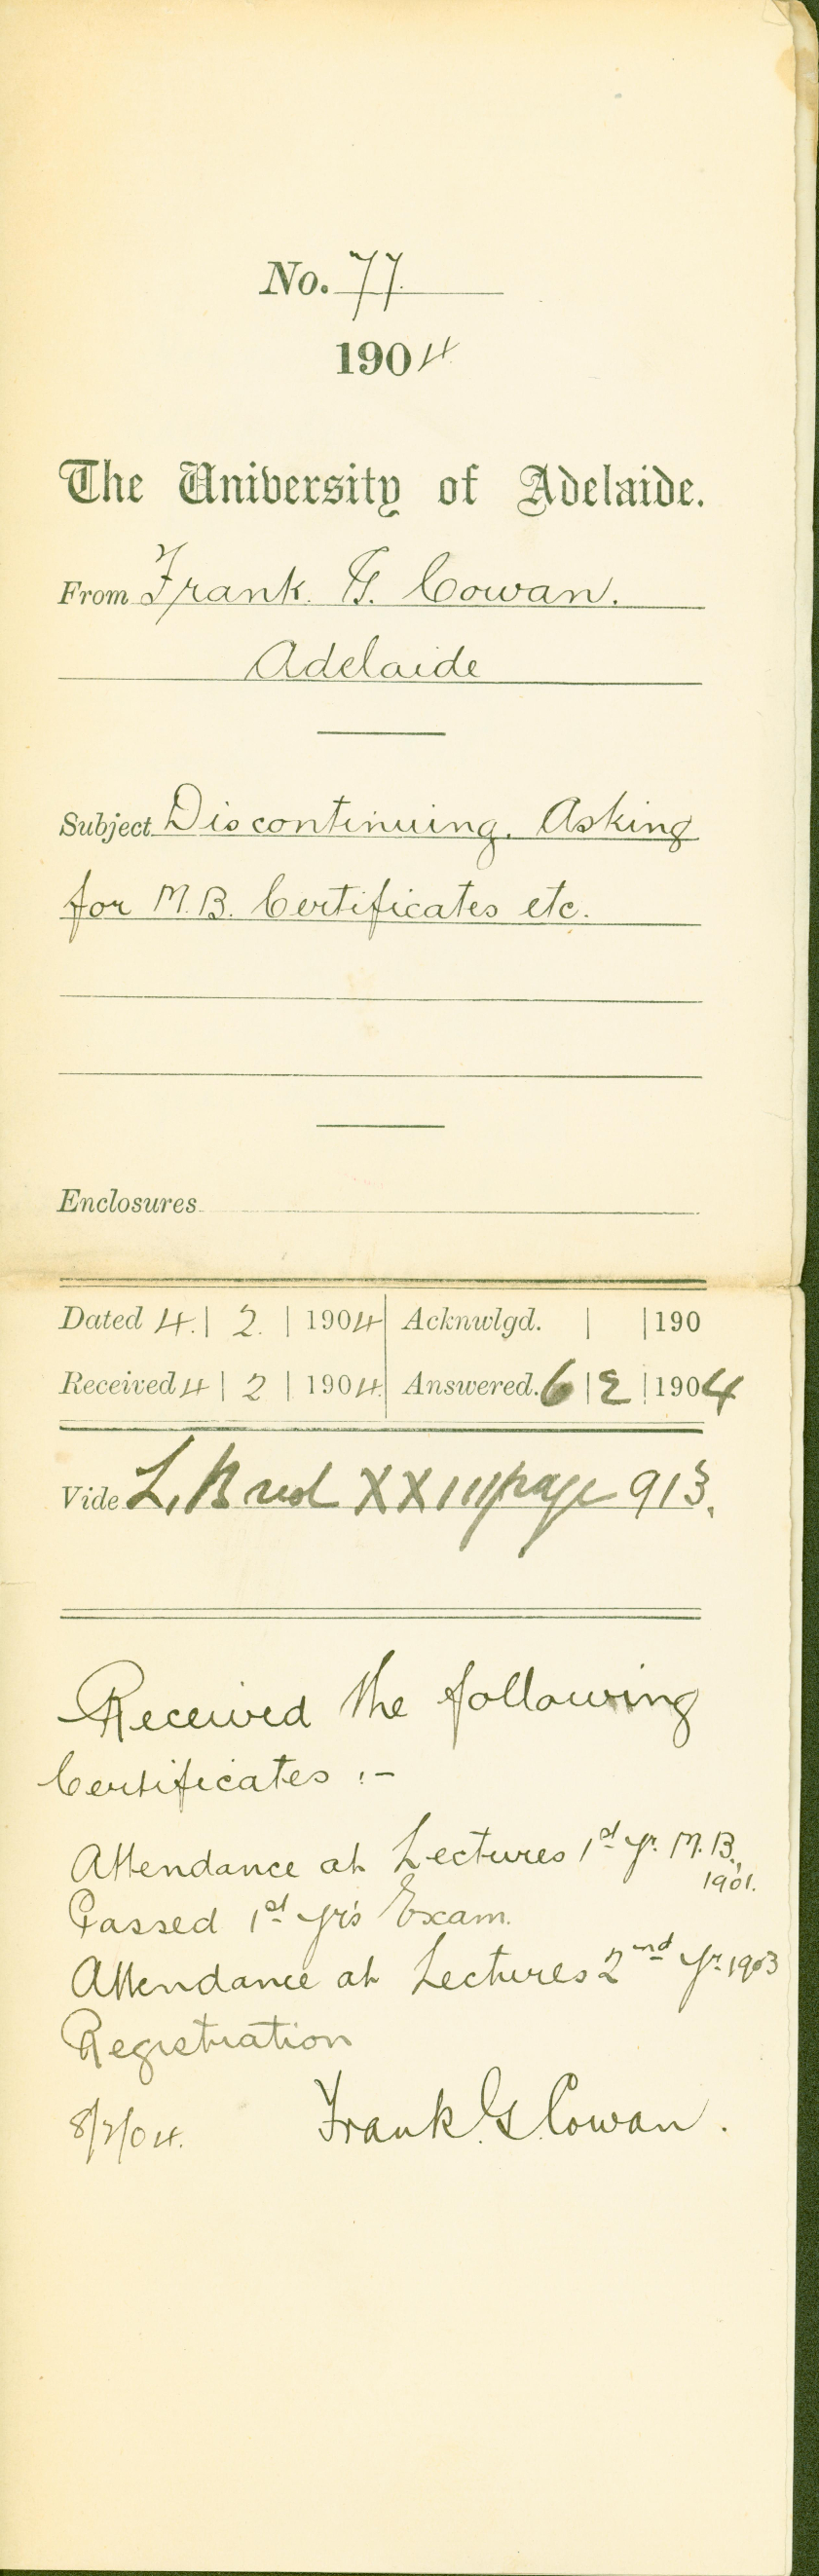 No. 77.
1904
The University of Adelaide.
From Frank. G. Cowan.
Adelaide
Subject Discontinuing. Asking
for M.B. Certificates etc.
Enclosures
Dated 4. | 2. | 1904 Acknwlgd. | | 190
Received 4 | 2 | 1904. Answered. 6 | 2 | 1904
Vide L. B vol XXIII page 913.
Received the following
Certificates :-
Attendance at Lectures 1st yr. M.B.,
1901.
Passed 1st yr's Exam.
Attendance at Lectures 2nd yr. 1903
Registration
8/2/04. Frank G. Cowan.